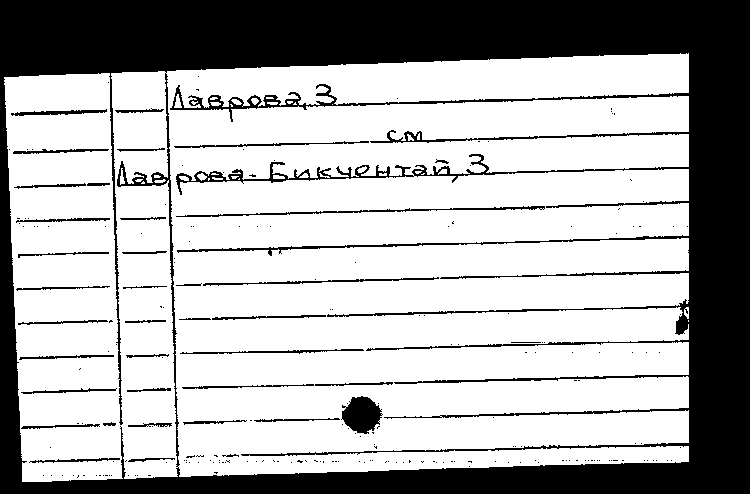 Лаврова, З
см
Лаврова-Бикчентай, З